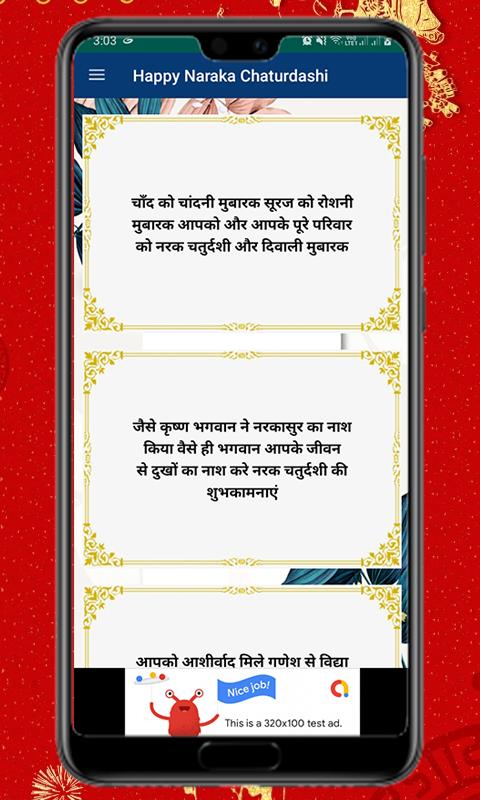 3:03
Happy Naraka Chaturdashi
चाँद को चांदनी मुबारक सूरज को रोशनी
मुबारक आपको और आपके पूरे परिवार
को नरक चतुर्दशी और दिवाली मुबारक
जैसे कृष्ण भगवान ने नरकासुर का नाश
किया वैसे ही भगवान आपके जीवन
से दुखों का नाश करे नरक चतुर्दशी की
शुभकामनाएं
आपको आशीर्वाद मिले गणेश से विद्या
Nice job!
This is a 320x100 test ad.